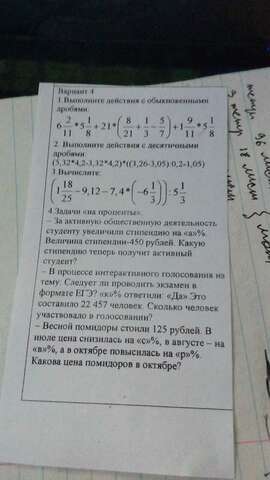 Вариант 4
1.Выполните действия с обыкновенными
дробями:
6 2/11 * 5 1/8 + 21 * (8/21 + 1/3 - 5/7) + 1 9/11 * 5 1/8
2. Выполните действия с десятичными
дробями:
(5,32*4,2-3,32*4,2)*((3,26-3,05):0,2-1,05)
3 Вычислите:
(1 18/25 - 9,12 - 7,4 * (-6 1/3)) : 5 1/3
4.Задачи «на проценты».
– За активную общественную деятельность
студенту увеличили стипендию на «а»%.
Величина стипендии-450 рублей. Какую
стипендию теперь получит активный
студент?
– В процессе интерактивного голосования на
тему: Следует ли проводить экзамен в
формате ЕГЭ? «к»% ответили: «Да» Это
составило 22 457 человек. Сколько человек
участвовало в голосовании?
– Весной помидоры стоили 125 рублей. В
июле цена снизилась на «с»%, в августе – на
«в»%, а в октябре повысилась на «р»%.
Какова цена помидоров в октябре?